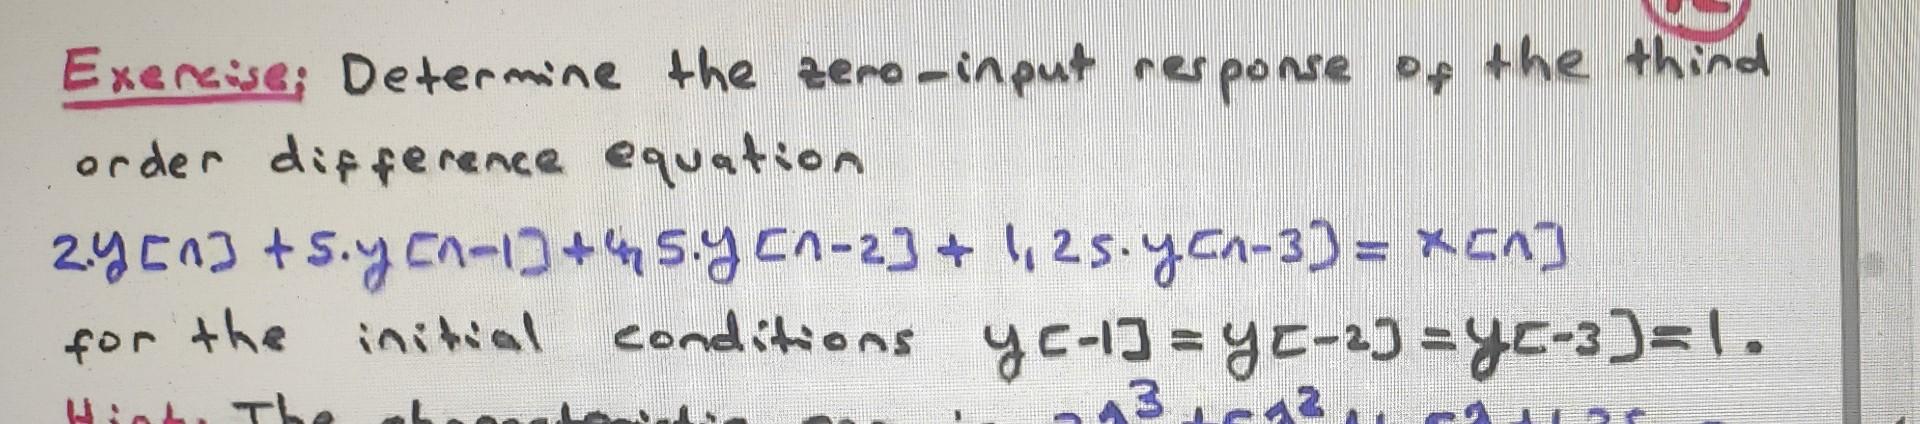 Exercise; Determine the zero-input response of the third
order difference equation
2.y[n] + 5.y[n-1] + 4,5.y[n-2] + 1,25.y[n-3] = x[n]
for the initial conditions y[-1] = y[-2] = y[-3] = 1.
Hint: The characteristic